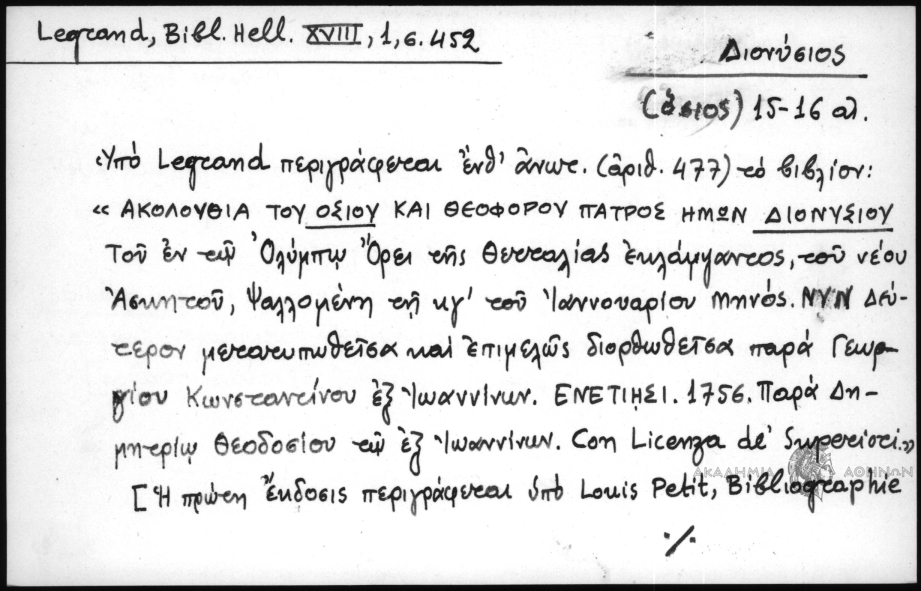 Legrand, Bibl. Hell. XVIII, 1, σ. 452
Διονύσιος
(ὅσιος) 15-16 αἰ.
Ὑπό Legrand περιγράφεται ἔνθ' ἄνωτ. (ἀριθ. 477) τό βιβλίον:
« ΑΚΟΛΟΥΘΙΑ ΤΟΥ ΟΣΙΟΥ ΚΑΙ ΘΕΟΦΟΡΟΥ ΠΑΤΡΟΣ ΗΜΩΝ ΔΙΟΝΥΣΙΟΥ
Τοῦ ἐν τῷ Ὀλύμπῳ Ὄρει τῆς Θετταλίας ἐκλάμψαντος, τοῦ νέου
Ἀσκητοῦ, Ψαλλομένη τῇ κγ' τοῦ Ἰαννουαρίου μηνός. ΝΥΝ Δεύ-
τερον μετατυπωθεῖσα καί ἐπιμελῶς διορθωθεῖσα παρά Γεωρ-
γίου Κωνσταντίνου ἐξ Ἰωαννίνων. ΕΝΕΤΙΗΣΙ. 1756. Παρά Δη-
μητρίῳ Θεοδοσίου τῷ ἐξ Ἰωαννίνων. Con Licenza de' Superiori.»
ΑΚΑΔΗΜΙΑ ΑΘΗΝΩΝ
[Ἡ πρώτη ἔκδοσις περιγράφεται ὑπό Louis Petit, Bibliographie
·/.